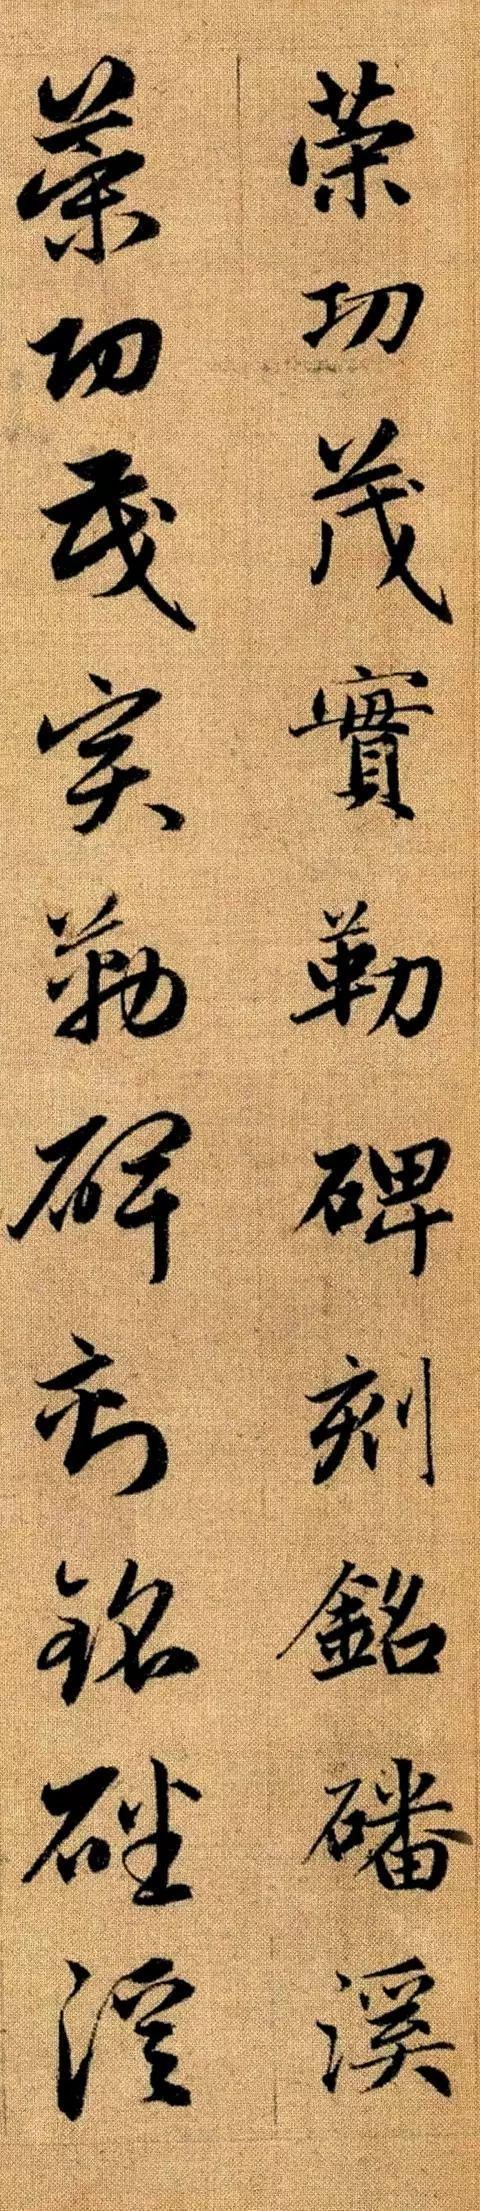 荣功茂實勒碑刻銘磻溪
荣功茂实勒碑刻銘磻溪